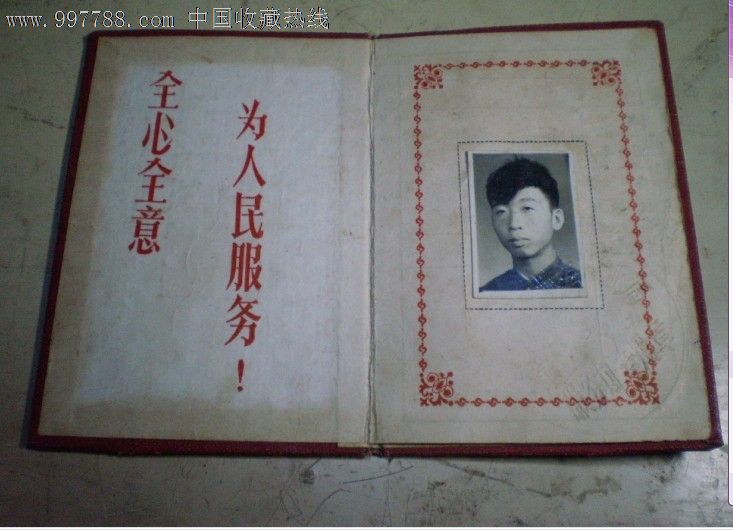 www.997788.com 中国收藏热线
全心全意
为人民服务！